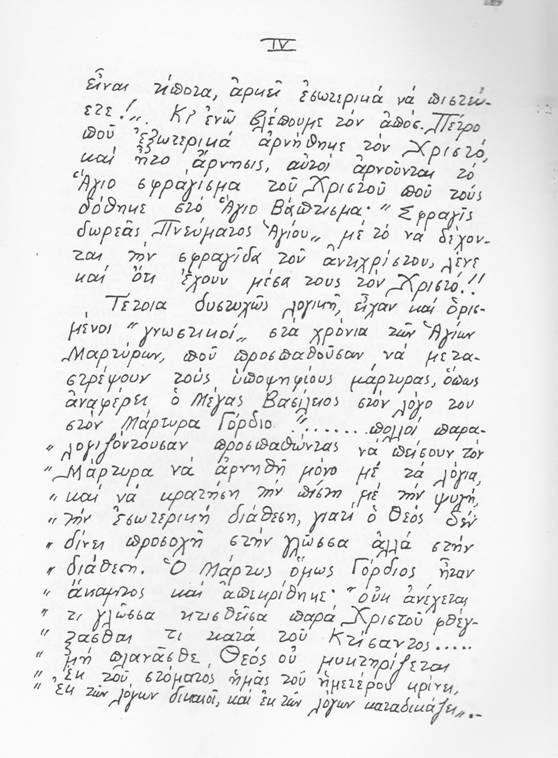 IV
εἶναι τίποτα, ἀρκεῖ ἐσωτερικά νά πιστεύ-
ετε!". Κι ἐνῶ βλέπουμε τόν ἀπόσ. Πέτρο
πού ἐξωτερικά ἀρνήθηκε τόν Χριστό,
καί ἦτο ἄρνησις, αὐτοί ἀρνοῦνται τό
Ἅγιο σφράγισμα τοῦ Χριστοῦ πού τούς
δόθηκε στό Ἅγιο Βάπτισμα· "Σφραγίς
δωρεᾶς Πνεύματος Ἁγίου" μέ τό νά δέχον-
ται τήν σφραγῖδα τοῦ ἀντιχρίστου, λένε
καί ὅτι ἔχουν μέσα τους τόν Χριστό!!
Τέτοια δυστυχῶς λογική, εἶχαν καί ὁρισ-
μένοι "γνωστικοί" στά χρόνια τῶν Ἁγίων
Μαρτύρων, πού προσπαθοῦσαν νά μετα-
στρέψουν τούς ὑποψηφίους μάρτυρας, ὅπως
ἀναφέρει ὁ Μέγας Βασίλειος στόν λόγο του
στόν Μάρτυρα Γόρδιο "........πολλοί παρα-
" λογιζόντουσαν προσπαθῶντας νά πείσουν τόν
" Μάρτυρα νά ἀρνηθῆ μόνο μέ τά λόγια,
" καί νά κρατήση τήν πίστη μέ τήν ψυχή,
" τήν ἐσωτερική διάθεση, γιατί ὁ Θεός δέν
" δίνει προσοχή στήν γλῶσσα ἀλλά στήν
" διάθεση. Ὁ Μάρτυς ὅμως Γόρδιος ἦταν
" ἄκαμπτος καί ἀπεκρίθηκε· "οὐκ ἀνέχεται
" τι γλῶσσα κτισθεῖσα παρά Χριστοῦ φθέγ-
" ξασθαι τι κατά τοῦ Κτίσαντος.....
" μή πλανᾶσθε, Θεός οὐ μυκτηρίζεται
" ἐκ τοῦ στόματος ἡμᾶς τοῦ ἡμετέρου κρίνει,
" ἐκ τῶν λόγων δικαιοῖ, καί ἐκ τῶν λόγων καταδικάζει".-